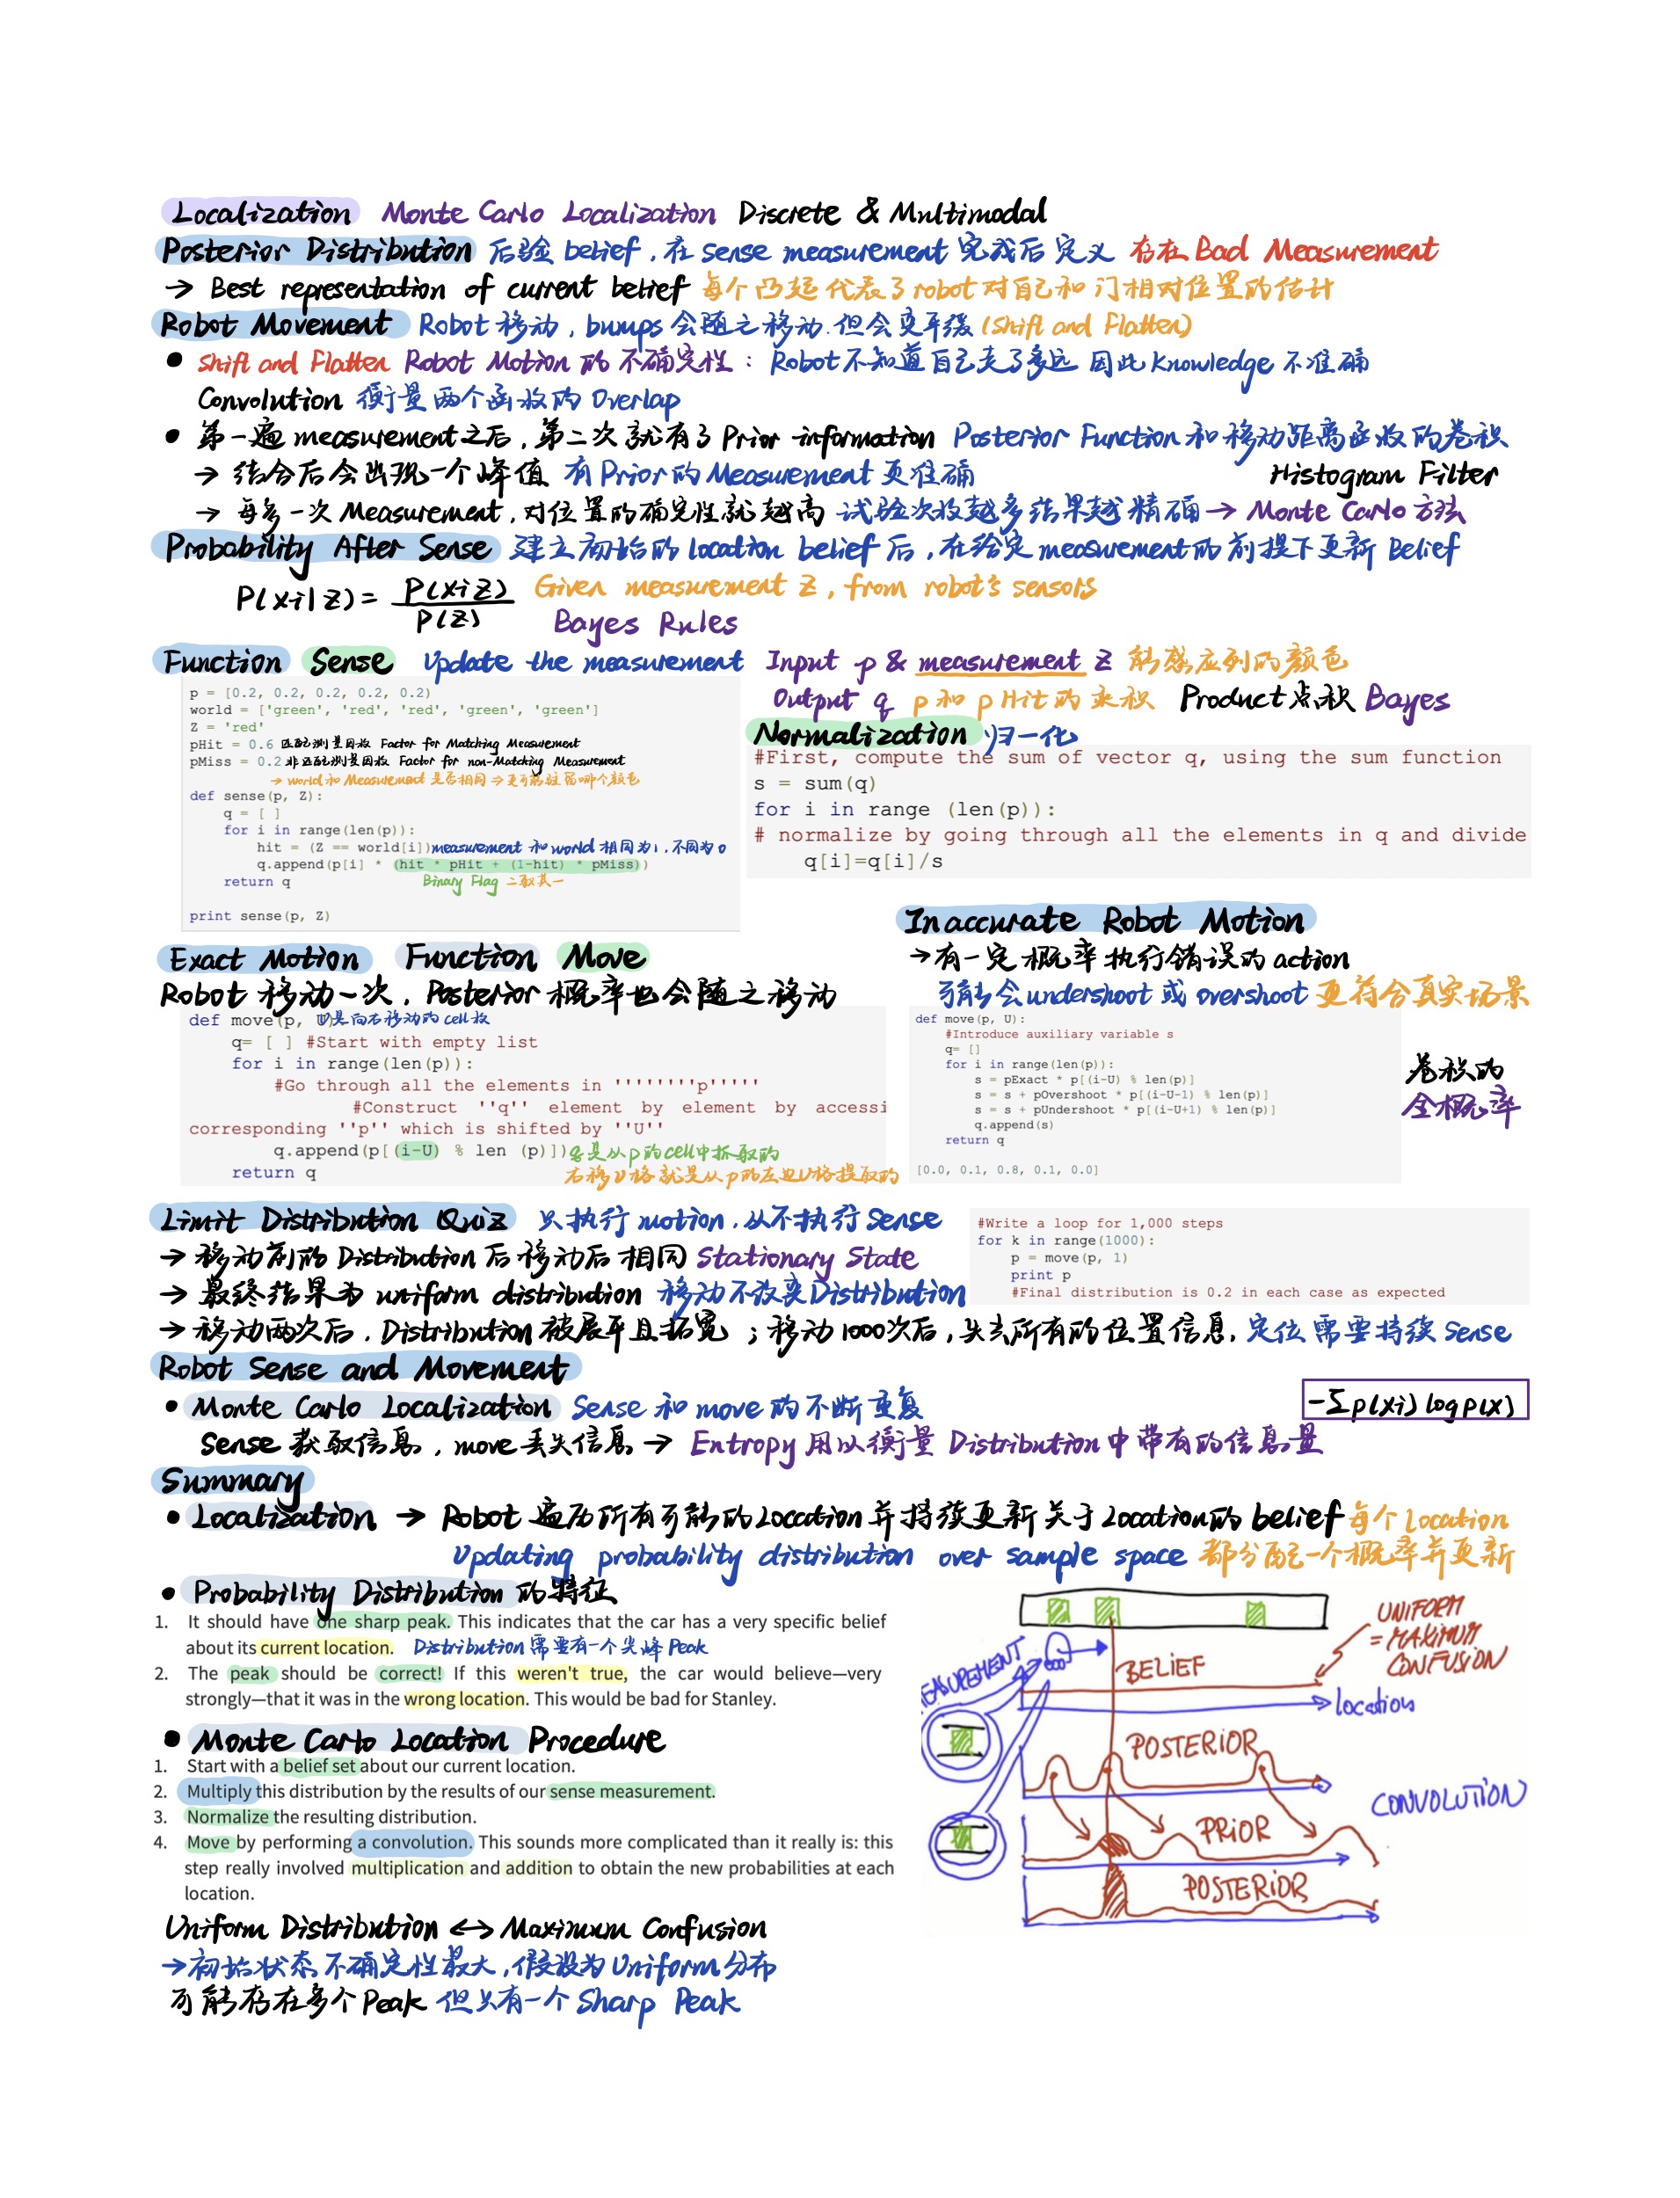 Localization Monte Carlo Localization Discrete & Multimodal
Posterior Distribution 后验 belief, 在 sense measurement 完成后定义 存在 Bad Measurement
→ Best representation of current belief 每个凸起代表了robot对自己和门相对位置的估计
Robot Movement Robot移动, bumps会随之移动.但会变平缓 (Shift and Flatten)
• Shift and Flatten Robot Motion的不确定性: Robot不知道自己走了多远 因此Knowledge不准确
Convolution 衡量两个函数的Overlap
• 第一遍measurement之后, 第二次就有了Prior information Posterior Function和移动距离函数的卷积
→ 结合后会出现一个峰值 有Prior的Measurement更准确 Histogram Filter
→ 每多一次Measurement, 对位置的确定性就越高 试验次数越多结果越精确 → Monte Carlo方法
Probability After Sense 建立初始的location belief后, 在给定measurement的前提下更新Belief
P(xi|Z) = P(xiZ) / P(Z) Given measurement Z, from robot's sensors
Bayes Rules
Function Sense Update the measurement Input p & measurement Z 能感应到的颜色
Output q p和pHit的乘积 Product点积 Bayes
p = [0.2, 0.2, 0.2, 0.2, 0.2)
world = ['green', 'red', 'red', 'green', 'green']
Z = 'red'
pHit = 0.6 匹配测量因数 Factor for Matching Measurement
pMiss = 0.2 非匹配测量因数 Factor for non-Matching Measurement
→ world和Measurement是否相同 → 更可能驻留哪个颜色
def sense(p, Z):
q = [ ]
for i in range(len(p)):
hit = (Z == world[i]) measurement和world相同为1, 不同为0
q.append(p[i] * (hit * pHit + (1-hit) * pMiss))
return q Binary Flag 二取其一
print sense(p, Z)
Normalization 归一化
#First, compute the sum of vector q, using the sum function
s = sum(q)
for i in range (len(p)):
# normalize by going through all the elements in q and divide
q[i]=q[i]/s
Exact Motion Function Move
Robot移动一次, Posterior概率也会随之移动
def move(p, U是向右移动的cell数
q= [ ] #Start with empty list
for i in range(len(p)):
#Go through all the elements in ''''''''p'''''
#Construct ''q'' element by element by accessi
corresponding ''p'' which is shifted by ''U''
q.append(p[(i-U) % len (p)]) q是从p的cell中抓取的
return q 右移U格就是从p的左边U格提取的
Inaccurate Robot Motion
→ 有一定概率执行错误的action
可能会undershoot或overshoot 更符合真实场景
def move(p, U):
#Introduce auxiliary variable s
q= []
for i in range(len(p)):
s = pExact * p[(i-U) % len(p)]
s = s + pOvershoot * p[(i-U-1) % len(p)]
s = s + pUndershoot * p[(i-U+1) % len(p)]
q.append(s)
return q
[0.0, 0.1, 0.8, 0.1, 0.0]
卷积的
全概率
Limit Distribution Quiz 只执行motion, 从不执行Sense
→ 移动前的Distribution后移动后相同 Stationary State
→ 最终结果为uniform distribution 移动不改变Distribution
#Write a loop for 1,000 steps
for k in range(1000):
p = move(p, 1)
print p
#Final distribution is 0.2 in each case as expected
→ 移动两次后, Distribution被展平且拓宽; 移动1000次后, 失去所有的位置信息, 定位需要持续Sense
Robot Sense and Movement
• Monte Carlo Localization Sense和move的不断重复
-Σp(xi) log p(x)
Sense获取信息, move丢失信息 → Entropy用以衡量Distribution中带有的信息量
Summary
• Localization → Robot遍历所有可能的Location并持续更新关于Location的belief 每个Location
Updating probability distribution over sample space 都分配一个概率并更新
• Probability Distribution的特征
1. It should have one sharp peak. This indicates that the car has a very specific belief
about its current location. Distribution需要有一个尖峰Peak
2. The peak should be correct! If this weren't true, the car would believe—very
strongly—that it was in the wrong location. This would be bad for Stanley.
• Monte Carlo Location Procedure
1. Start with a belief set about our current location.
2. Multiply this distribution by the results of our sense measurement.
3. Normalize the resulting distribution.
4. Move by performing a convolution. This sounds more complicated than it really is: this
step really involved multiplication and addition to obtain the new probabilities at each
location.
Uniform Distribution ↔ Maximum Confusion
→ 初始状态不确定性最大, 假设为Uniform分布
可能存在多个Peak 但只有一个Sharp Peak
UNIFORM
= MAXIMUM
CONFUSION
EASUREMENT
BELIEF
location
POSTERIOR
CONVOLUTION
PRIOR
POSTERIOR